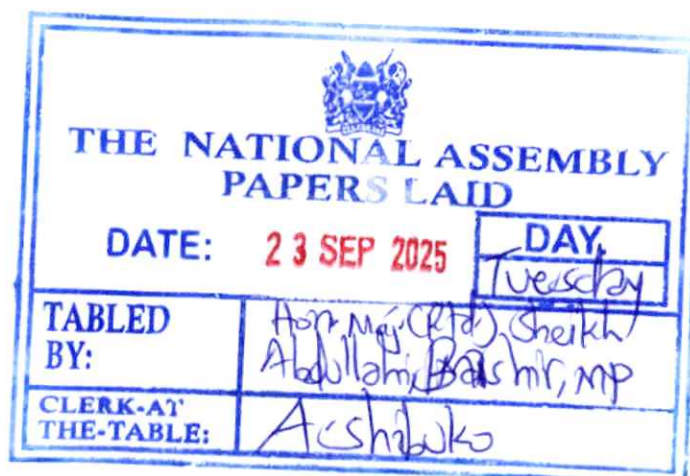 THE NATIONAL ASSEMBLY
PAPERS LAID
DATE: 23 SEP 2025
DAY.
Tuesday
TABLED
BY:
Hon. Maj. (Rtd.) Sheikh
Abdullahi, Bashir, MP
CLERK-AT
THE-TABLE: